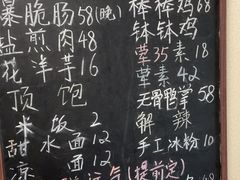 暴脆肠58(晚)
盐煎肉48
花洋芋16
顶饱
米饭2
甜水面12
凉面12
棒棒鸡68
钵钵鸡
荤35素18
荤素42
无骨鸭掌68
解辣
手工冰粉10
(提前定)